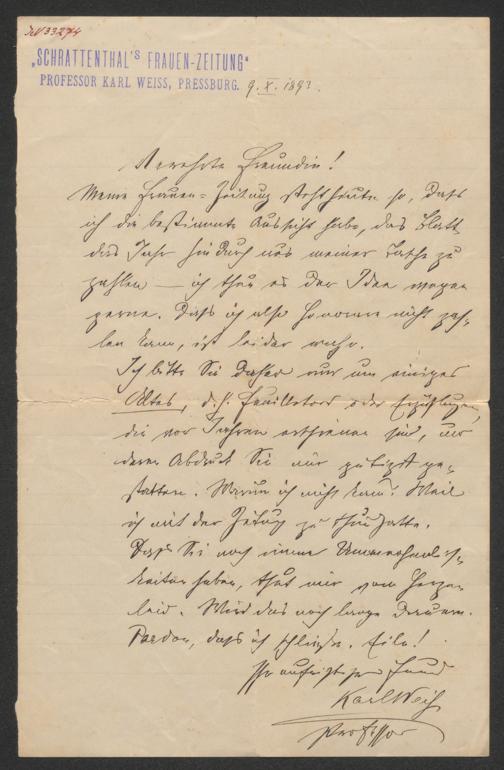 JN 33274
„SCHRATTENTHAL'S FRAUEN-ZEITUNG"
PROFESSOR KARL WEISS, PRESSBURG. 9. X. 1893.
Verehrte Freundin!
Meine Frauen-Zeitung steht heute so, daß
ich die bestimmte Aussicht habe, das Blatt
das Jahr hindurch aus meiner Tasche zu
zahlen — ich thue es der Idee wegen
gerne. Daß ich also Honorare nicht zah-
len kann, ist leider wahr.
Ich bitte Sie daher nur um einiges
Altes, d. h. Feuilletons oder Erzählungen,
die vor Jahren erschienen sind, und
deren Abdruck Sie mir gütigst ge-
statten. Warum ich nicht kam? Weil
ich mit der Zeitung zu thun hatte.
Daß Sie noch immer
haben, thut mir von Herzen
leid. Wird das noch lange dauern.
Pardon, daß ich schließe. Eile!
Ihr aufrichtiger Freund
Karl Weiß
Professor